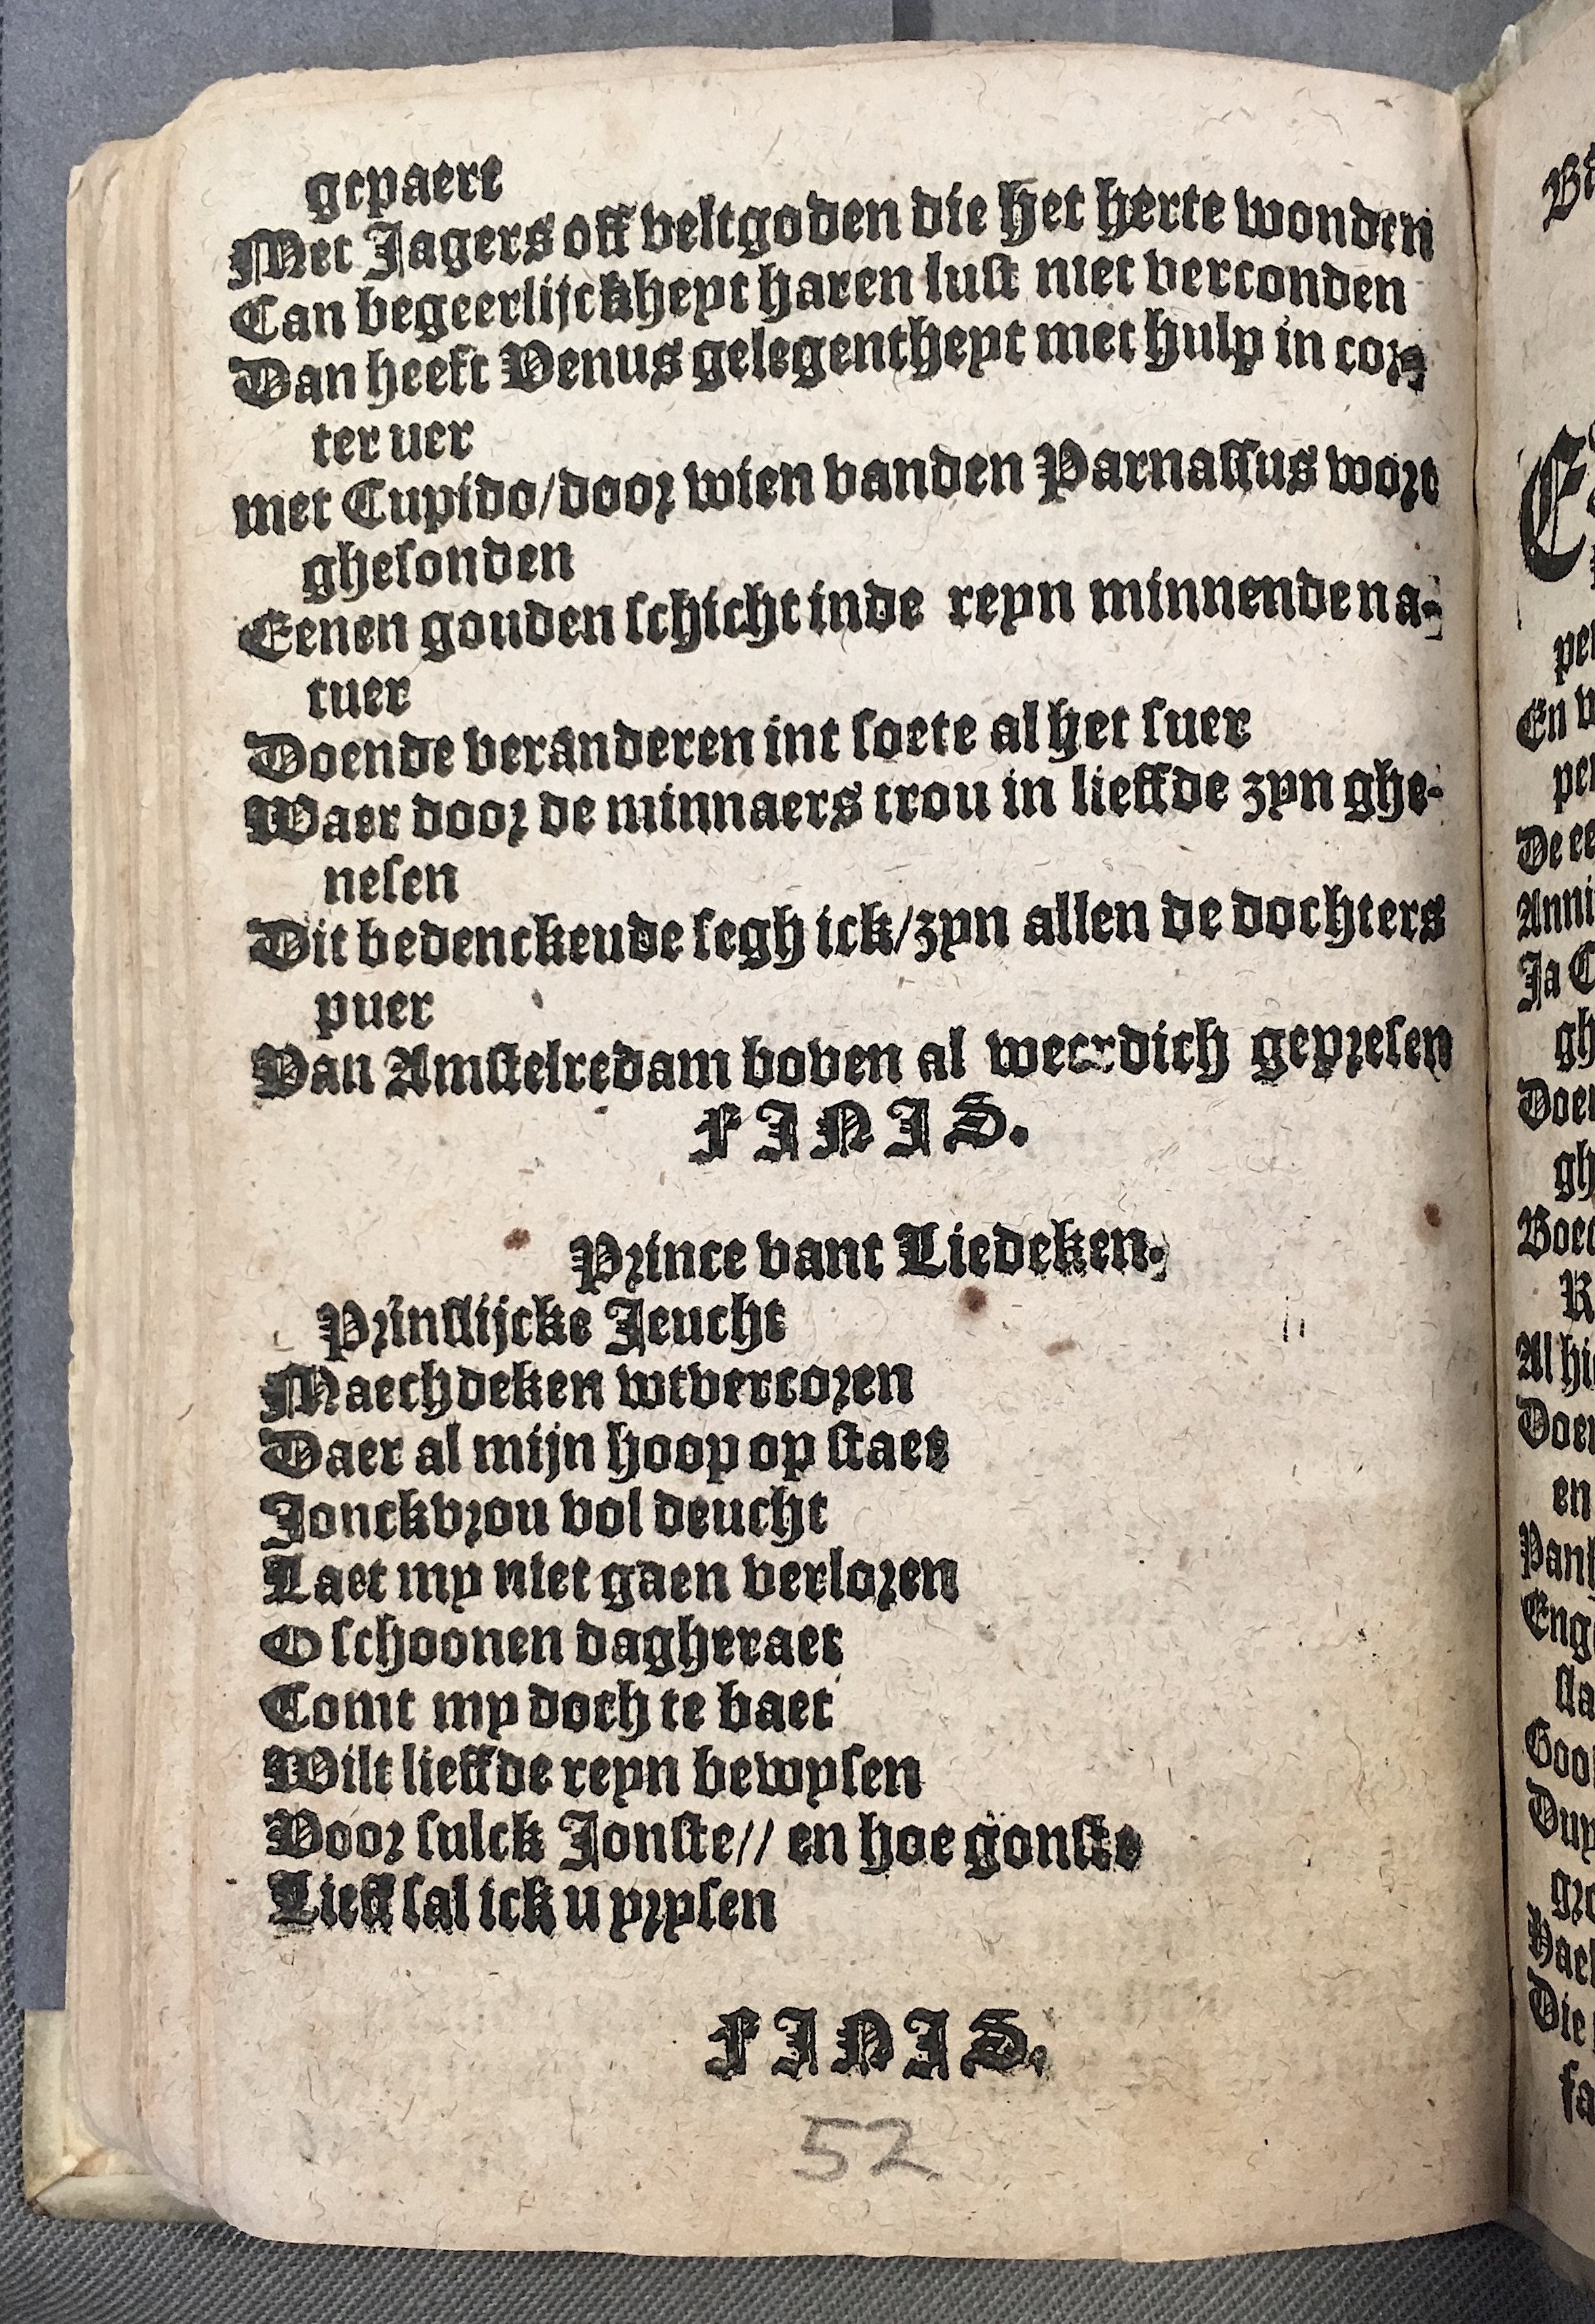 gepaert
Met Jagers off veltgoden die het herte wonden
Can begeerlijckheyt haren lust niet verconden
Dan heeft Venus gelegentheyt met hulp in cor-
ter uer
met Cupido/door wien vanden Parnassus wort
ghesonden
Eenen gouden schicht inde reyn minnende na-
tuer
Doende veranderen int soete al het suer
Waer door de minnaers trou in lieffde zyn ghe-
nesen
Dit bedenckeude segh ick/zyn allen de dochters
puer
Van Amstelredam boven al weerdich gepresen
FINIS.
Prince vant Liedeken.
Prinslijcke Jeucht
Maechdeken wtvercoren
Daer al mijn hoop op staet
Jonckvrou vol deucht
Laet my niet gaen verloren
O schoonen dagheraet
Comt my doch te baet
Wilt lieffde reyn bewysen
Voor sulck Jonste// en hoe gonste
Lieff sal ick u prysen
FINIS.
52